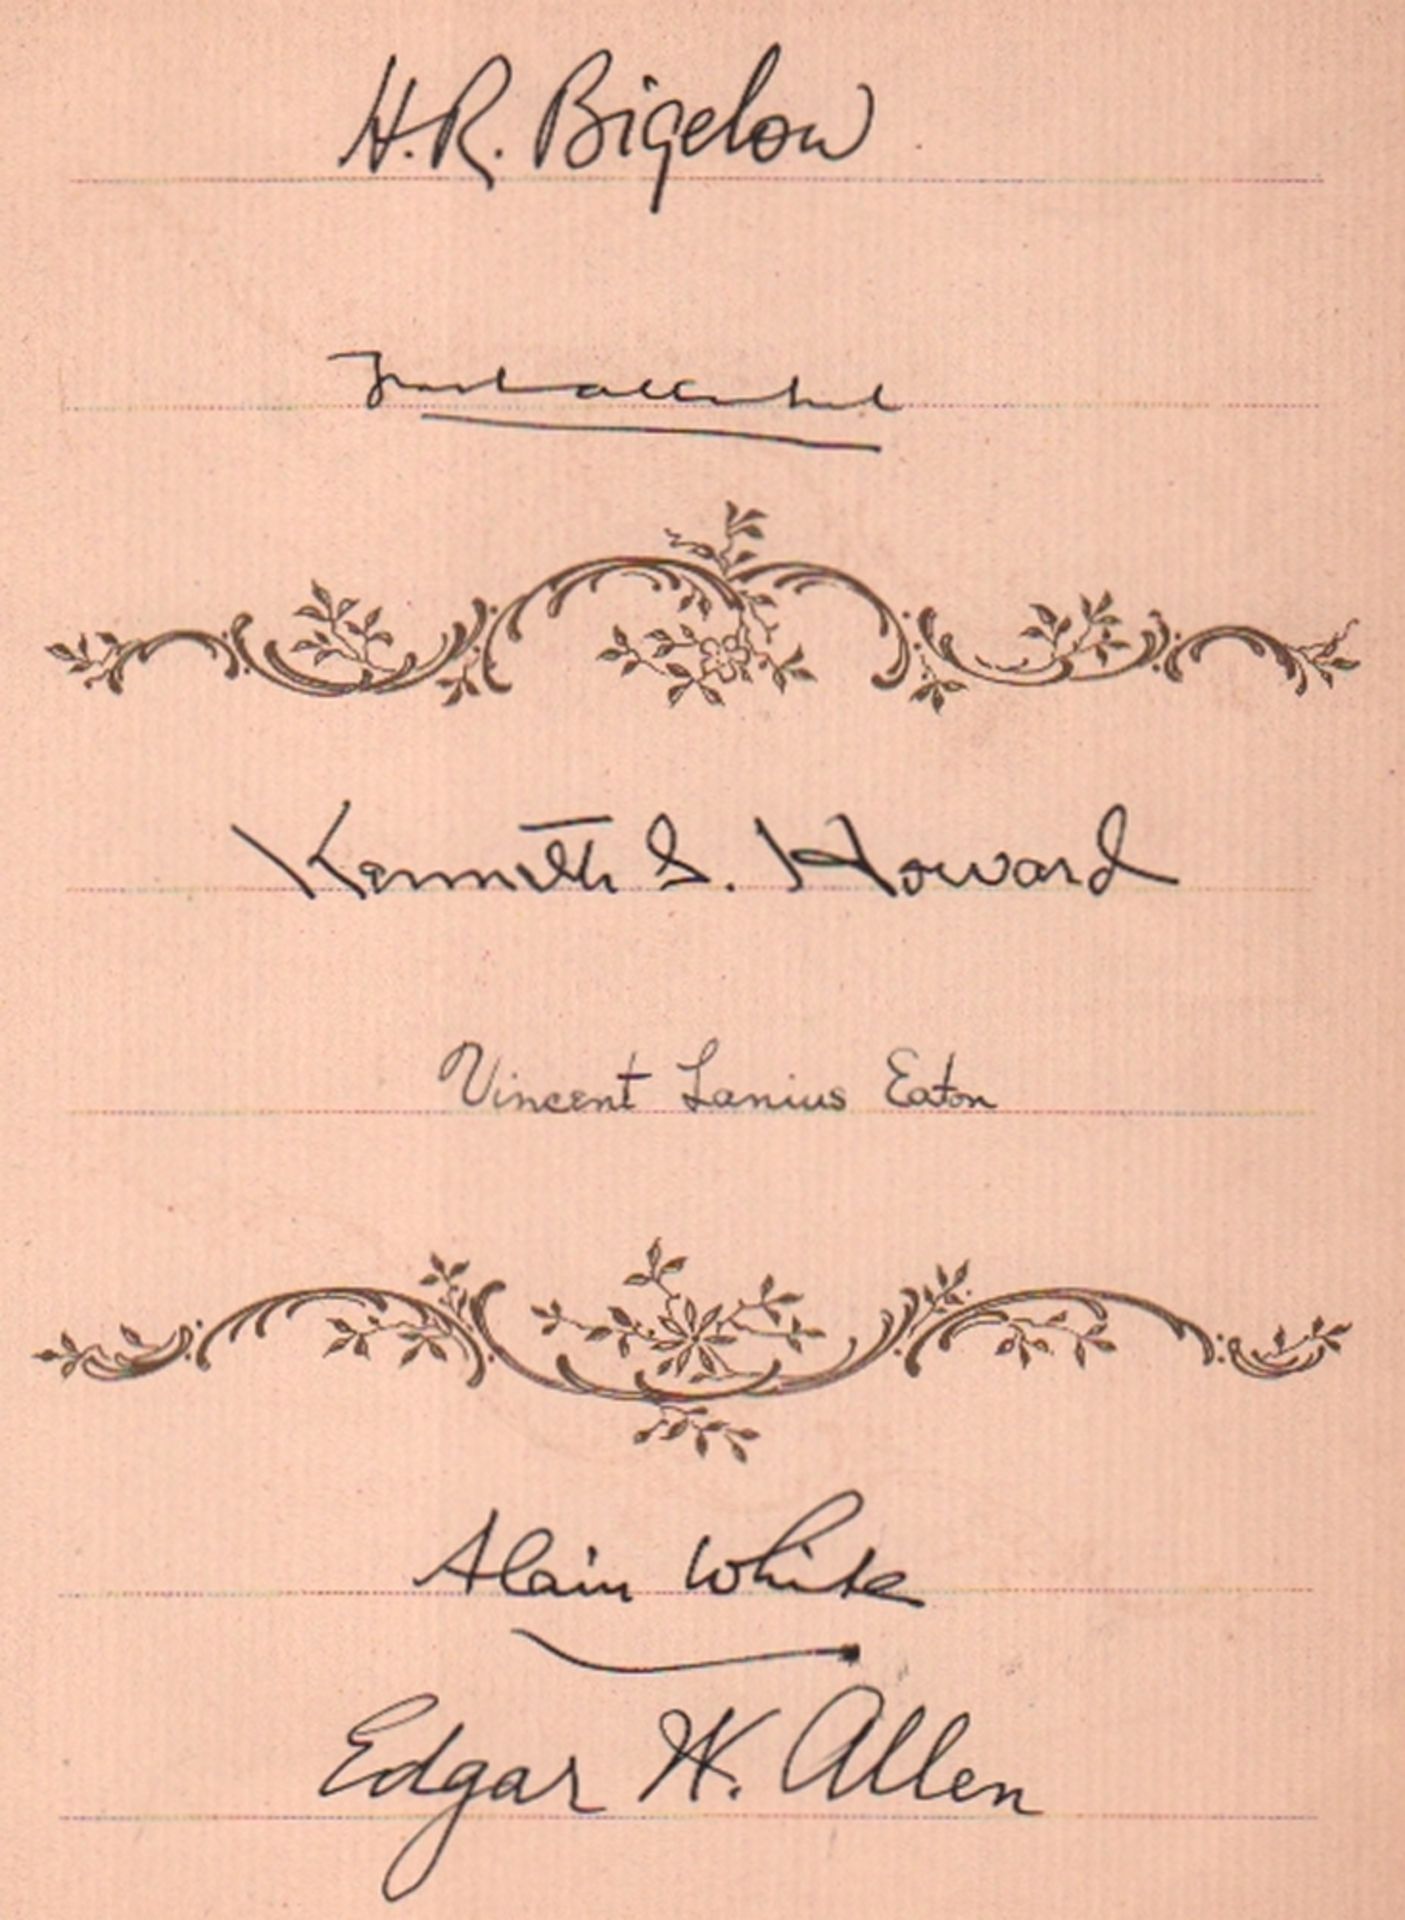 H.R. Bigelow
Kenneth S. Howard
Vincent Lanius Eaton
Alain White
Edgar W. Allen